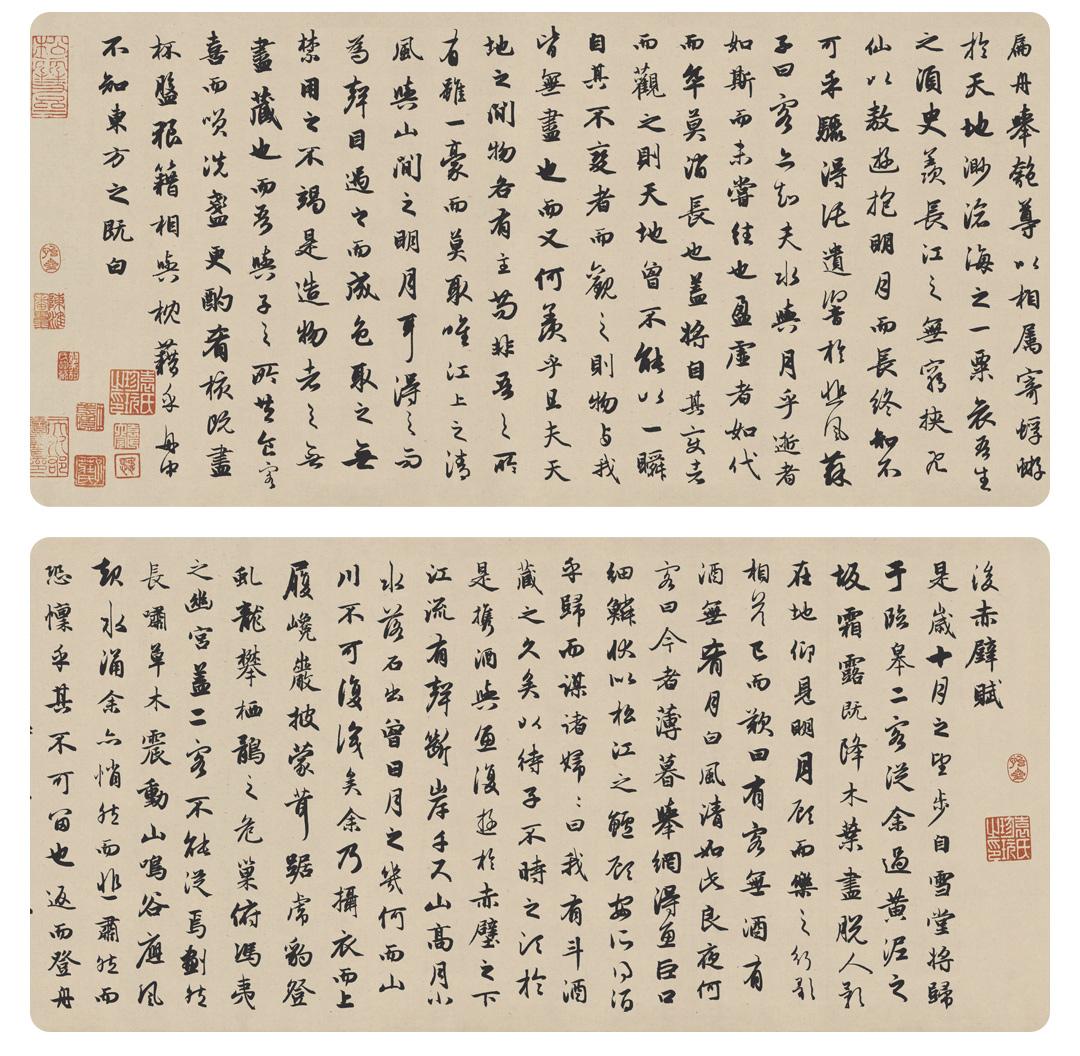 扁舟舉匏尊以相屬寄蜉蝣
於天地渺滄海之一粟哀吾生
之須臾羨長江之無窮挾飛
仙以敖遊抱明月而長終知不
可乎驟得託遺響於悲風蘇
子曰客亦知夫水與月乎逝者
如斯而未嘗往也盈虛者如代
而卒莫消長也蓋將自其變者
而觀之則天地曾不能以一瞬
自其不變者而觀之則物與我
皆無盡也而又何羨乎且夫天
地之間物各有主苟非吾之所
有雖一豪而莫取唯江上之清
風與山間之明月耳得之而
為聲目遇之而成色取之無
禁用之不竭是造物者之無
盡藏也而吾與子之所共食客
喜而笑洗盞更酌肴核既盡
杯盤狼籍相與枕藉乎舟中
不知東方之既白
後赤壁賦
是歲十月之望步自雪堂將歸
于臨皋二客從余過黃泥之
坂霜露既降木葉盡脫人影
在地仰見明月顧而樂之行歌
相答已而歎曰有客無酒有
酒無肴月白風清如此良夜何
客曰今者薄暮舉網得魚巨口
細鱗狀似松江之鱸顧安所得酒
乎歸而謀諸婦〻曰我有斗酒
藏之久矣以待子不時之須於
是攜酒與魚復遊於赤壁之下
江流有聲斷岸千尺山高月小
水落石出曾日月之幾何而山
川不可復識矣余乃攝衣而上
履巉巖披蒙茸踞虎豹登
虬龍攀栖鶻之危巢俯馮夷
之幽宮蓋二客不能從焉劃然
長嘯草木震動山鳴谷應風
起水涌余亦悄然而悲肅然而
恐懍乎其不可留也返而登舟